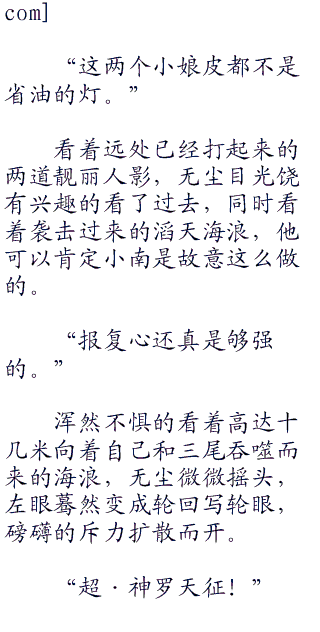 com]
“这两个小娘皮都不是
省油的灯。”
看着远处已经打起来的
两道靓丽人影，无尘目光饶
有兴趣的看了过去，同时看
着袭击过来的滔天海浪，他
可以肯定小南是故意这么做
的。
“报复心还真是够强
的。”
浑然不惧的看着高达十
几米向着自己和三尾吞噬而
来的海浪，无尘微微摇头，
左眼蓦然变成轮回写轮眼，
磅礴的斥力扩散而开。
“超·神罗天征！”